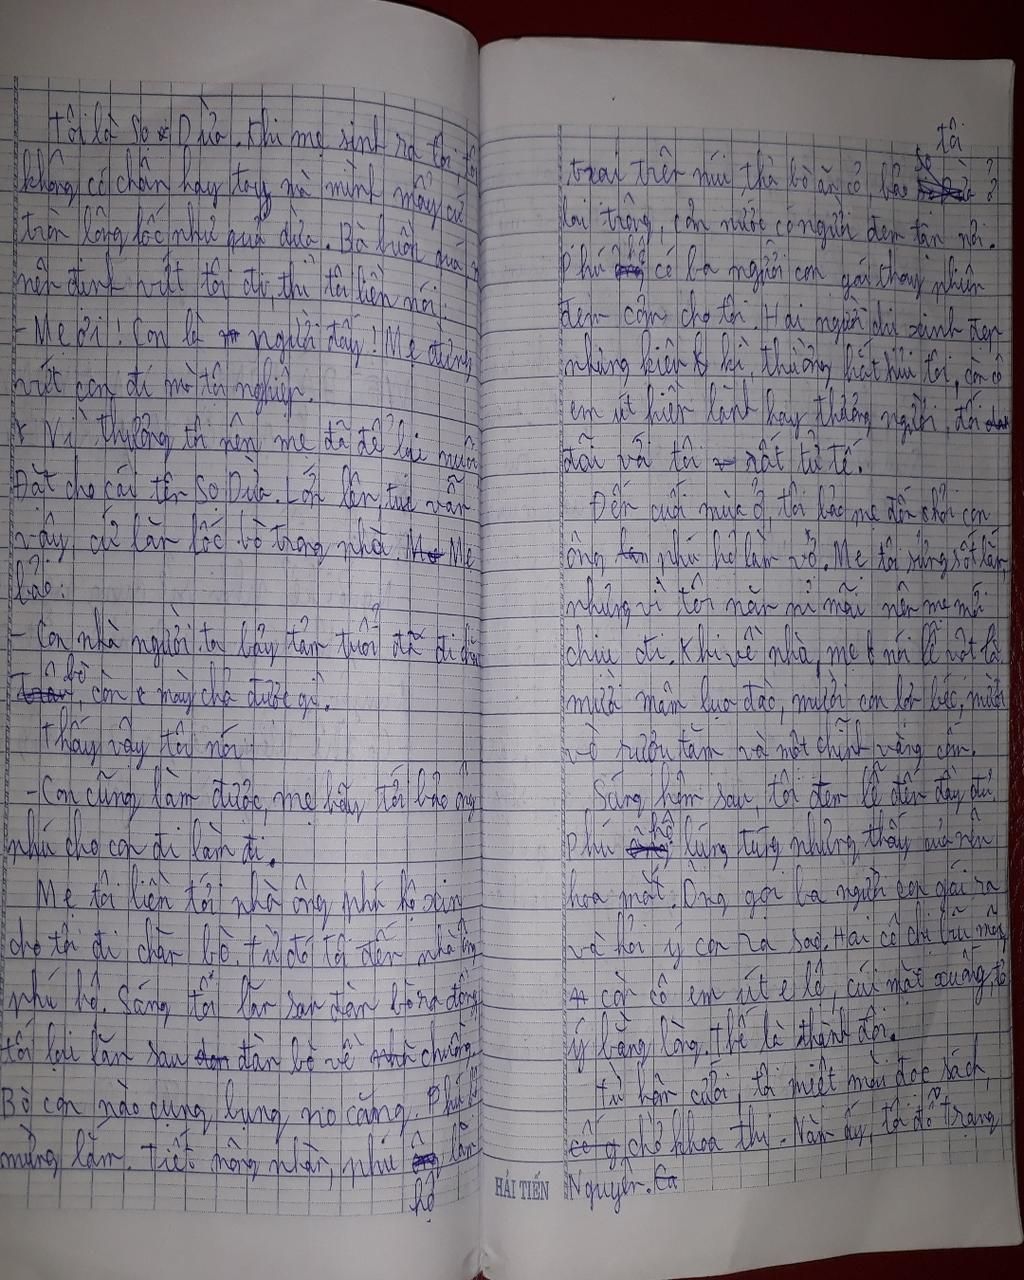 Tôi là Sọ Dừa. Khi mẹ sinh ra tôi, tôi
không có chân hay tay mà mình mẩy cứ
tròn lông lốc như quả dừa. Bà buồn quá
nên định vứt tôi đi, thì tôi liền nói:
- Mẹ ơi! Con là người đấy! Mẹ đừng
vứt con đi mà tội nghiệp.
Vì thương tôi nên mẹ đã để lại nuôi
Đặt cho cái tên Sọ Dừa. Lớn lên, tôi vẫn
vậy, cứ lăn lốc bò trong nhà. Mẹ
bảo:
- Con nhà người ta bảy tám tuổi đã đi chăn
bò, còn mày chả được gì.
Thấy vậy tôi nói:
- Con cũng làm được, mẹ hãy tới bảo ông
phú cho con đi làm đi.
Mẹ tôi liền tới nhà ông phú hộ xin
cho tôi đi chăn bò. Từ đó tôi đến nhà ông
phú hộ. Sáng tôi lăn sau đàn bò ra đồng
tối lại lăn sau đàn bò về chuồng.
Bò con nào cũng bụng no căng. Phú hộ
mừng lắm. Tiết nông nhàn, phú hộ
trại trên núi thả bò ăn cỏ, bảo tôi ở
lại trông, cơm nước có người đem tận nơi.
Phú hộ có ba người con gái thay phiên
đem cơm cho tôi. Hai người chị xinh đẹp
nhưng kiêu kì, thường hắt hủi tôi, còn cô
em út hiền lành hay thương người, đối
đãi với tôi rất tử tế.
Đến cuối mùa ở, tôi bảo mẹ đến hỏi con
ông phú hộ làm vợ. Mẹ tôi sửng sốt lắm,
nhưng vì tôi năn nỉ mãi nên mẹ mới
chịu đi. Khi về nhà, mẹ nói lễ vật là
mười mâm lụa đào, mười con lợn béo, mười
vò rượu tăm và một chĩnh vàng cốm.
Sáng hôm sau, tôi đem lễ đến đầy đủ,
Phú hộ lúng túng nhưng thấy của nên
hoa mắt. Ông gọi ba người con gái ra
và hỏi ý con ra sao. Hai cô chị bĩu môi,
còn cô em út e lệ, cúi mặt xuống, tỏ
ý bằng lòng. Thế là thành đôi.
Từ hôm cưới, tôi miệt mài đọc sách,
chờ khoa thi. Năm ấy, tôi đỗ trạng
HẢI TIẾN Nguyên.